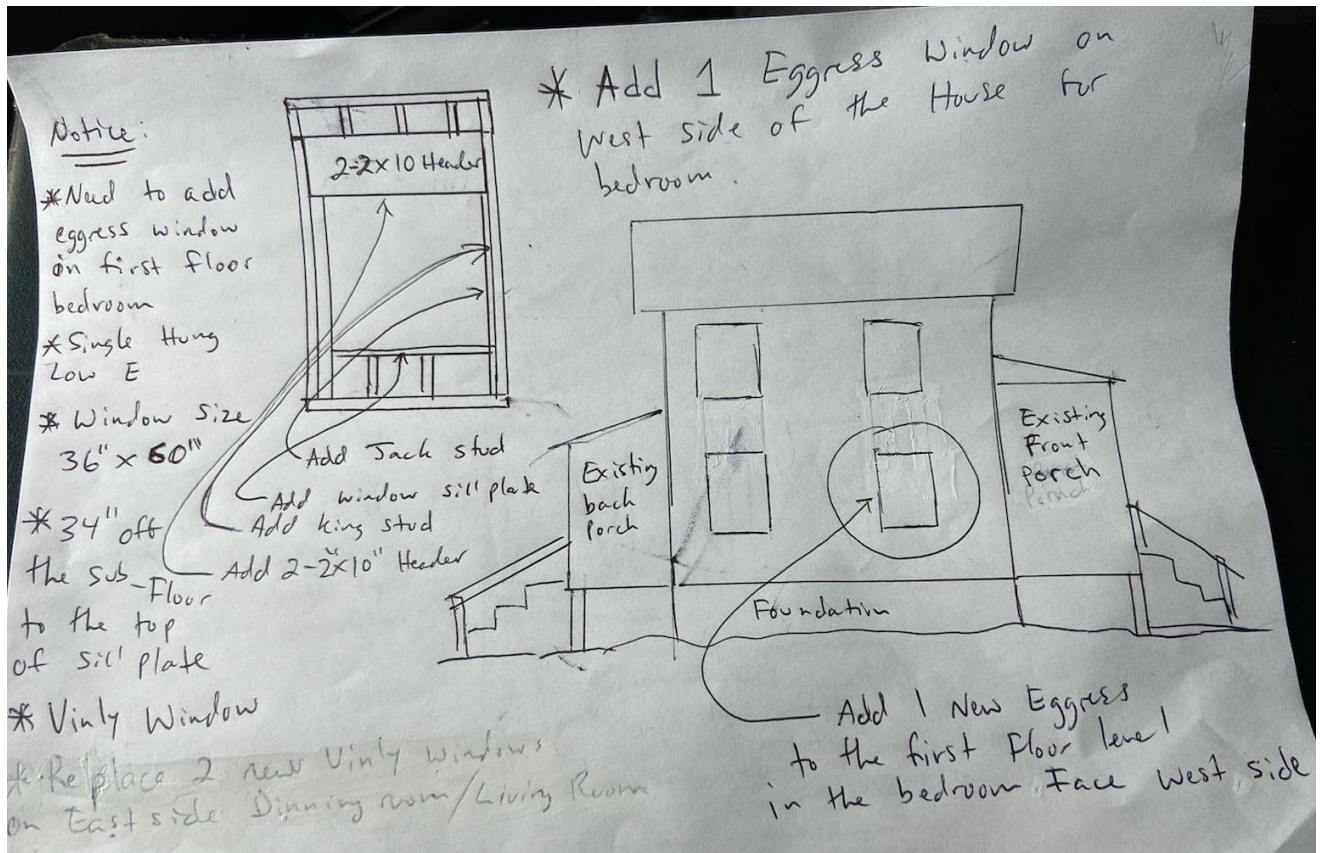 Notice:
*Need to add
eggress window
on first floor
bedroom
*Single Hung
Low E
* Window Size
36" x 60"
* 34" off
the sub-Floor
to the top
of sill plate
* Vinly Window
* Replace 2 new Vinly windows
on East side Dinning room/Living Room
2-2x10 Header
Add Jack stud
Add window sill plate
Add king stud
Add 2-2"x10" Header
* Add 1 Eggress Window on
West side of the House for
bedroom.
Existing
back
Porch
Existing
Front
Porch
Foundation
Add 1 New Eggress
to the first floor level
in the bedroom Face West side